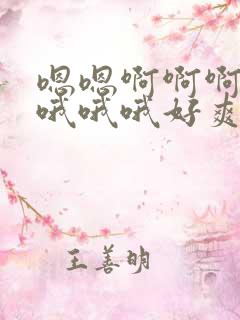 嗯嗯啊啊啊
哦哦哦好爽
王善明